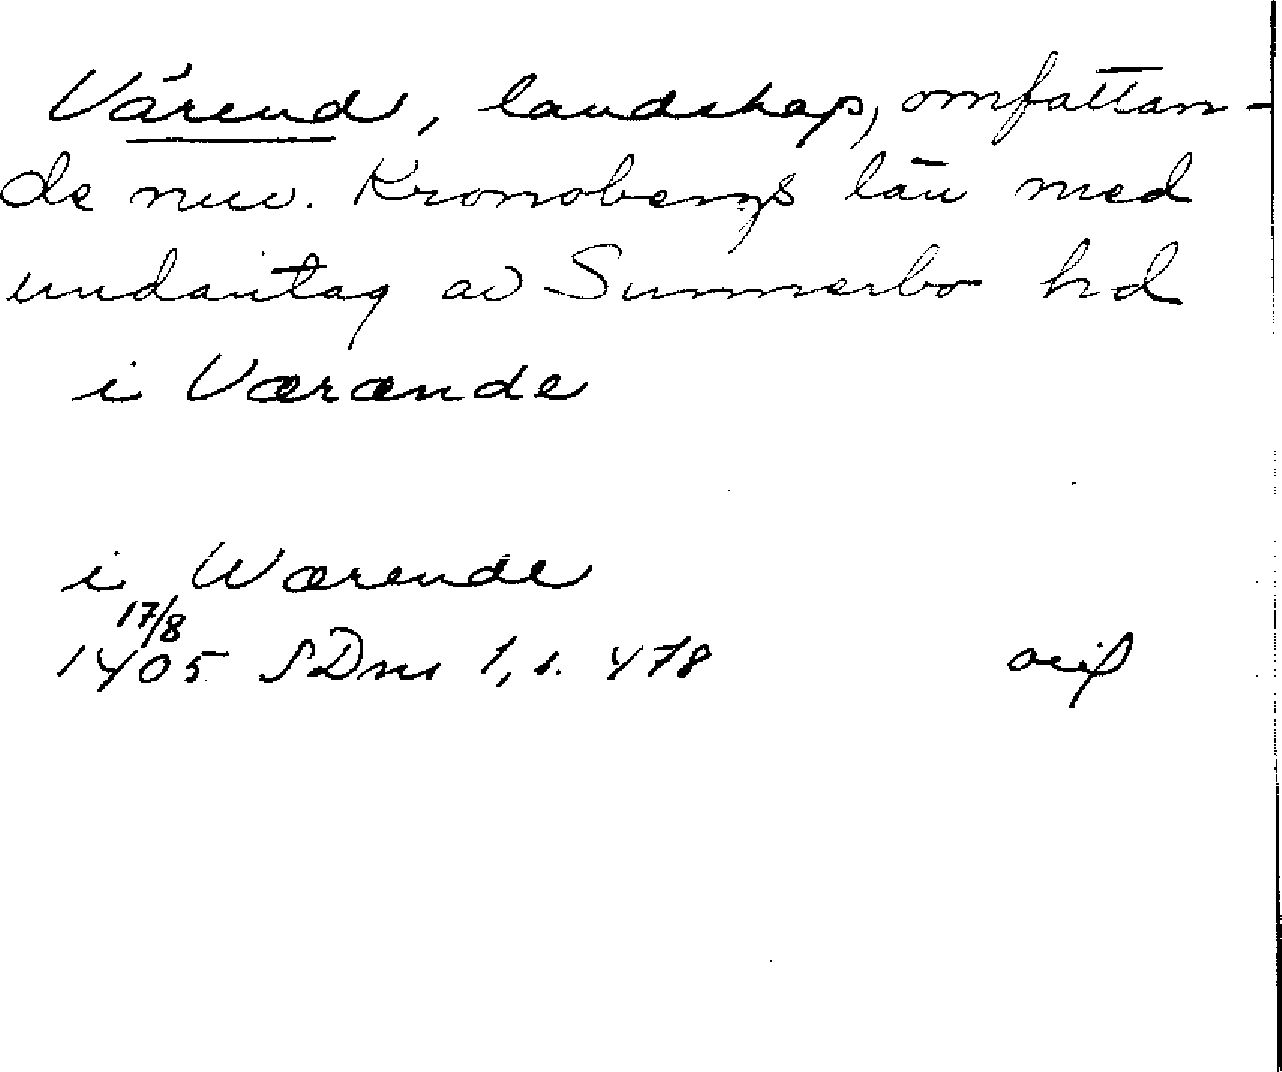 Värend, landskap, omfattan-
de nuv. Kronobergs län med
undantag av Sunnerbo hd
iVærænde
i Wærende
17/8
1405 SDns 1, s. 478